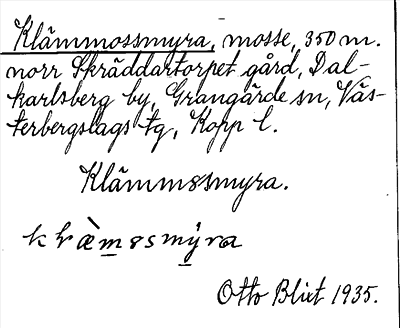 Klämmossmyra, mosse, 350 m.
norr Skräddartorpet gård, Dal-
karlsberg by, Grangärde sn, Väs-
terbergslags tg, Kopp l.
Klämmøsmyra.
Otto Blixt 1935.